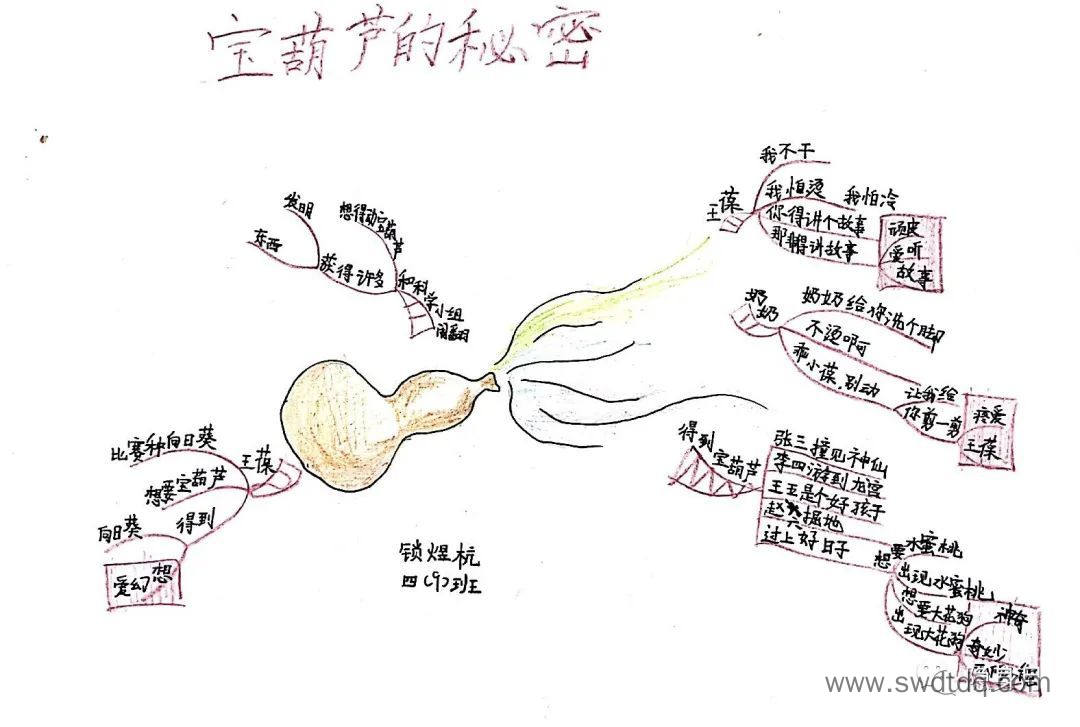 宝葫芦的秘密
王葆
我不干
我怕烫
我怕冷
你得讲个故事
那得讲故事
顽皮
爱听
故事
奶奶
奶奶给你洗个脚
不烫啊
乖小葆,别动
让我给
你剪一剪
疼爱
王葆
得到宝葫芦
张三撞见神仙
李四游到龙宫
王五是个好孩子
赵六掘地
过上好日子
想要水蜜桃
出现水蜜桃
想要大花狗
出现大花狗
神奇
奇妙
和科学小组
闹翻
想得到宝葫芦
获得许多
发明
东西
王葆
比赛种向日葵
想要宝葫芦
得到
向日葵
爱幻想
锁煜杭
四(9)班
www.swdtdq.com